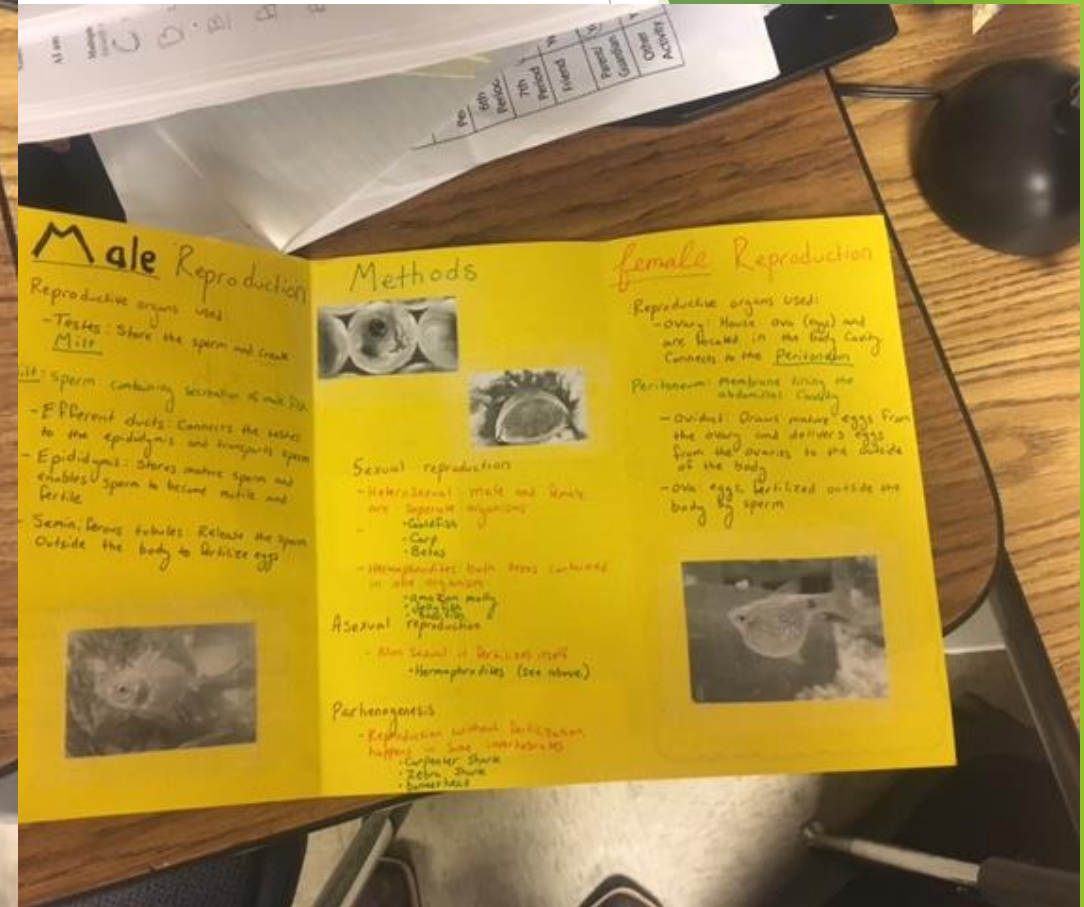 C
D
B
Per
6th Period
7th Period
Friend
Parent/
Guardian
Other
Activity
Male Reproduction
Reproductive organs used:
- Testes: Store the sperm and create
Milt
Milt: Sperm containing secretion of male fish
- Efferent ducts: Connects the testes
to the epididymis and transports sperm
- Epididymis: Stores mature sperm and
enables sperm to become motile and
fertile
- Seminiferous tubules: Release the sperm
Outside the body to fertilize eggs
Methods
Sexual reproduction
- Heterosexual: male and female
are seperate organisms
• Goldfish
• Carp
• Betas
- Hermaphrodites: both sexes contained
in one organism
• amazon molly
• Jellyfish
Asexual reproduction
- Non sexual it fertilizes itself
• Hermaphrodites (see above)
Parhenogenesis
- Reproduction without fertilization,
happens in some invertebrates
• Carpenter Shark
• Zebra Shark
• bonnethead
female Reproduction
Reproductive organs used:
- Ovary: House ova (eggs) and
are located in the body cavity
Connects to the Peritoneum
Peritoneum: Membrane lining the
abdominal cavity
- Oviduct: Draws mature eggs from
the ovary and delivers eggs
from the ovaries to the outside
of the body
- Ova: eggs, fertilized outside the
body by sperm